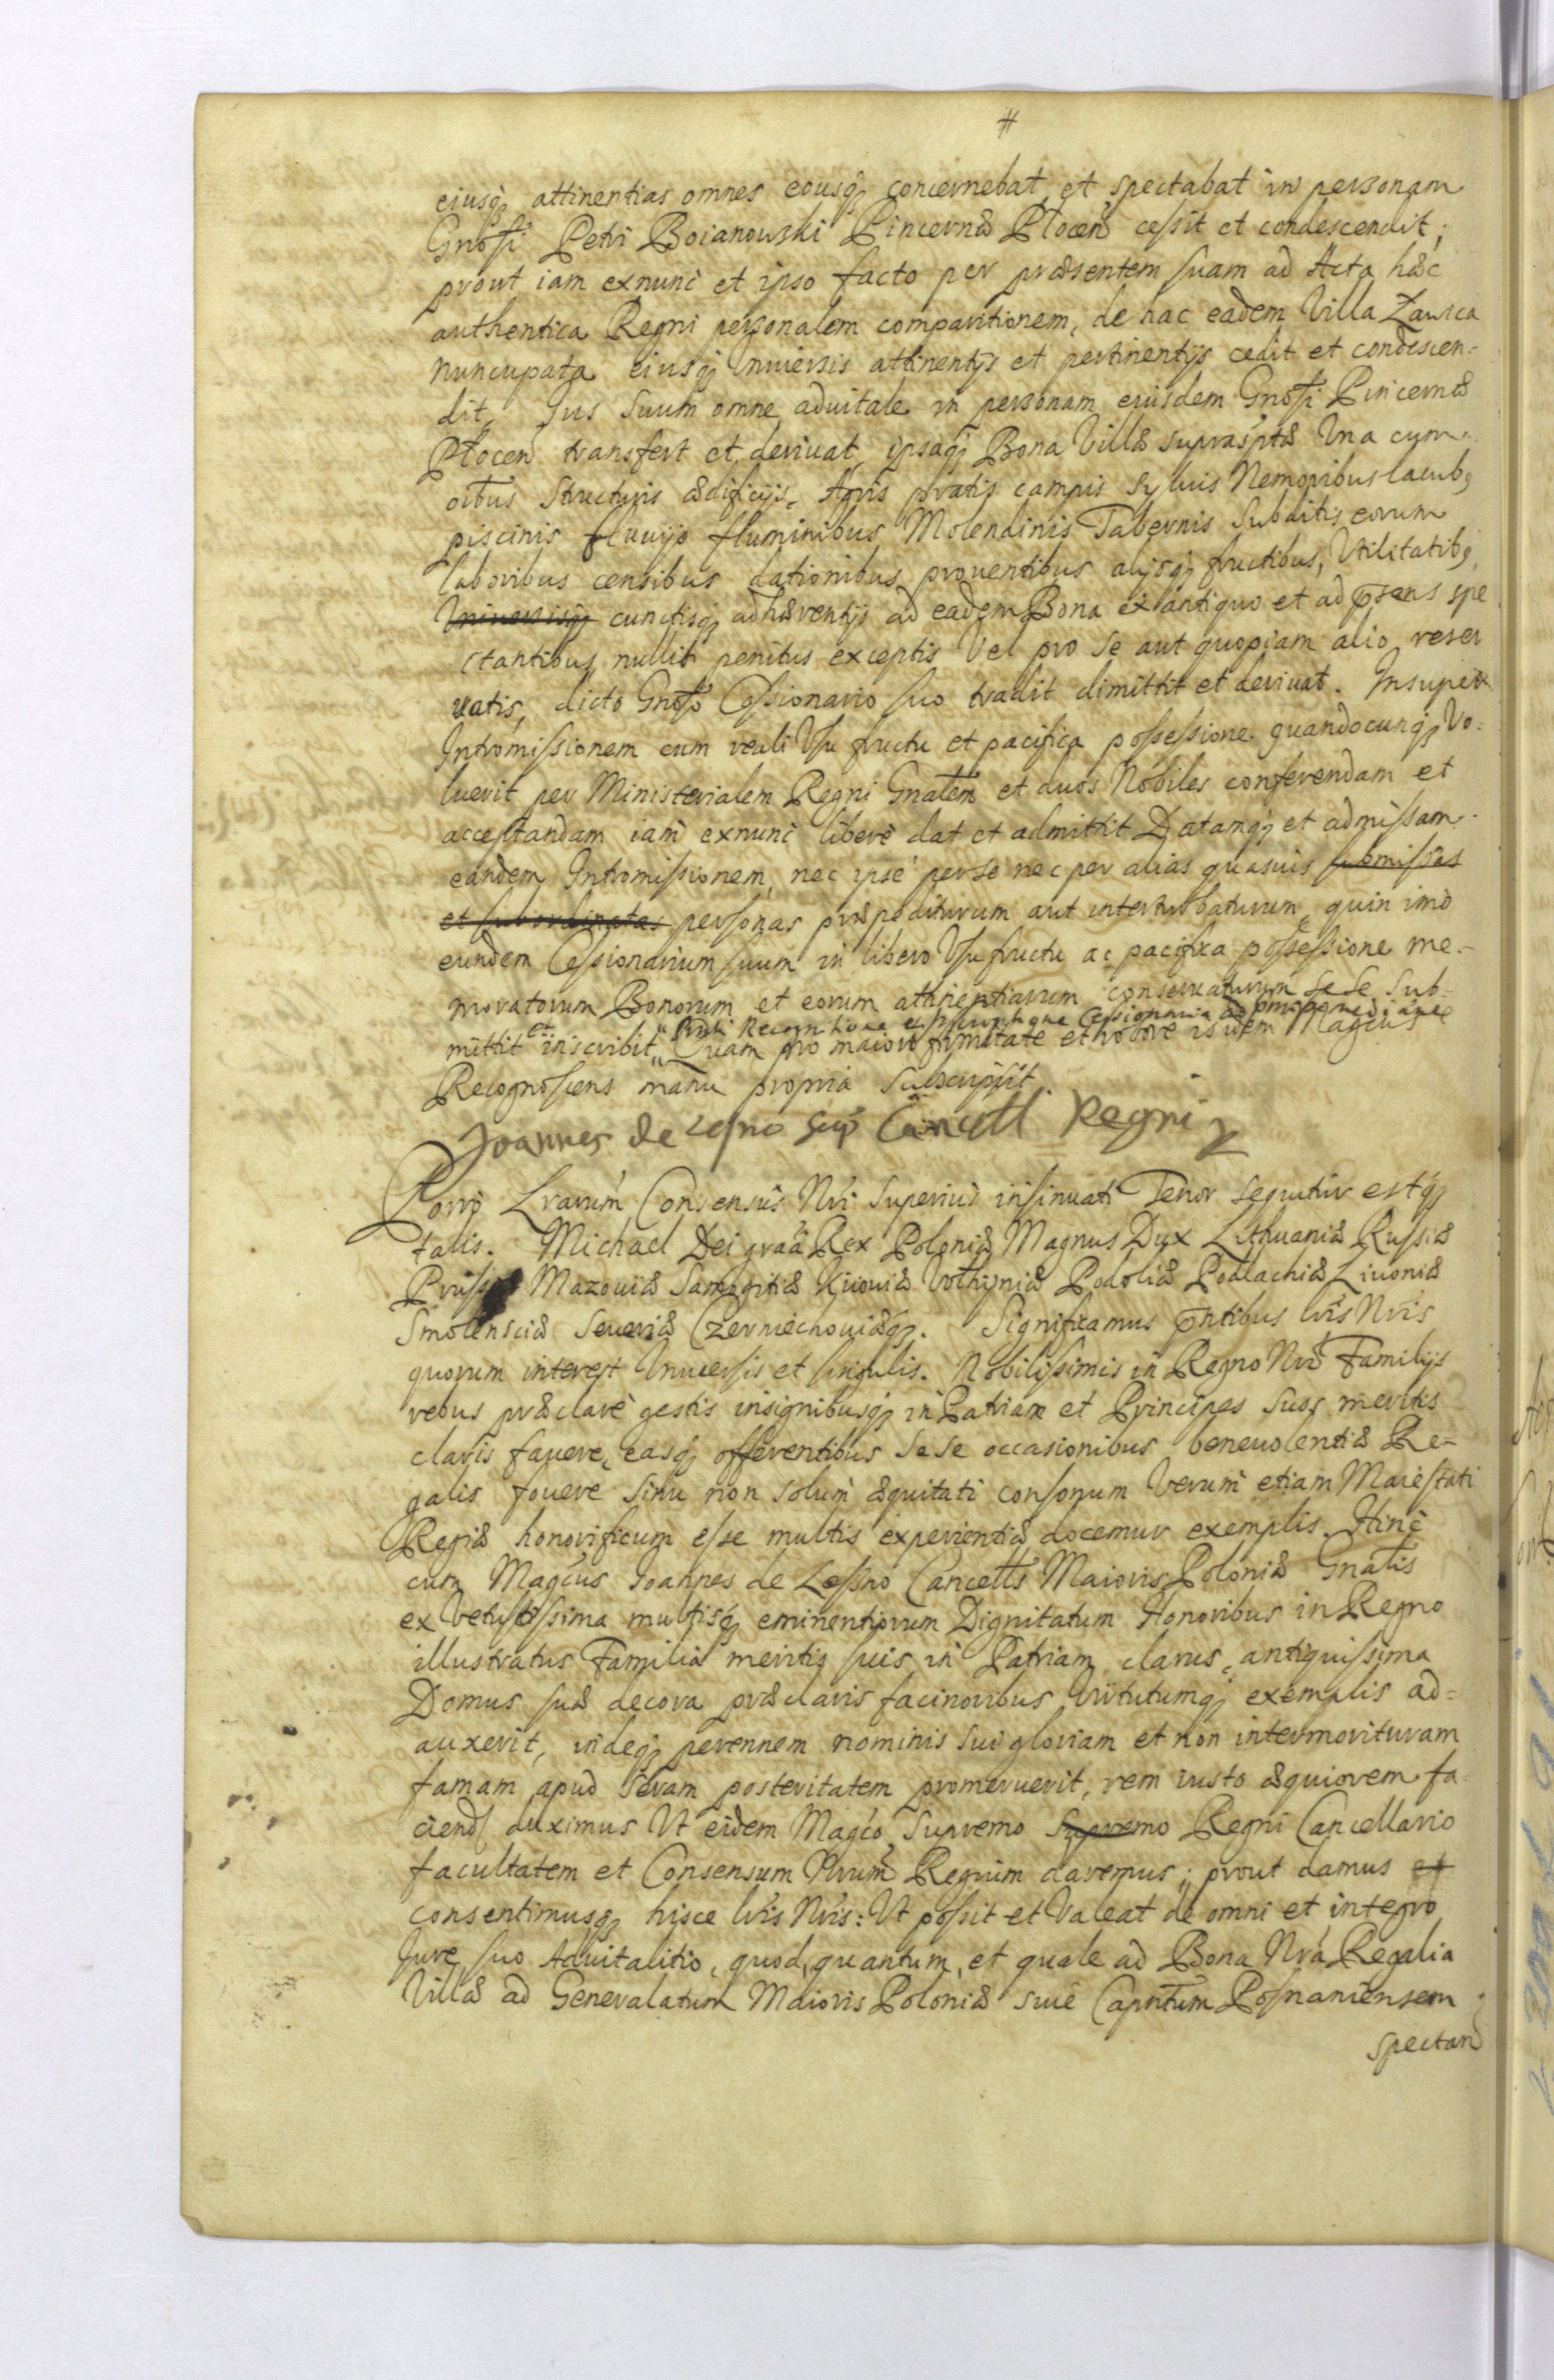 #
eiusq; attinentias omnes eousq; concernebat, et spectabat in personam
Gnosi Petri Boianowski Pincernæ Plocen cessit et condescendit;
prout iam exnunc et ipso facto per præsentem suam ad Acta hæc
authentica Regni personalem comparitionem, de hac eadem Villa Zawica
nuncupata eiusq; Vniuersis attinentijs et pertinentijs cedit et condescen-
dit, Jus Suum omne aduitale in personam eiusdem Gnosi Pincernæ
Plocen transfert et deriuat, ipsaq; Bona Villæ suprasptæ Vna cum
oibus Structuris ædificijs, Agris pratis campis Syluis Nemoribus lacub9
piscinis fluuijs fluminibus Molendinis Tabernis Subditis eorum
laboribus censibus dationibus prouentibus alijsq; fructibus, Vtilitatib9
Vniuersisq; cunctisq; adhærentijs ad eadem Bona ex antiquo et ad præns spe
ctantibus, nullis penitus exceptis Vel pro Se aut quopiam alio reser
uatis, dicto Gnoso Cessionario suo tradit dimittit et deriuat. Insuper
Intromissionem cum reali Vsu fructu et pacifica possessione quandocunq; Vo-
luerit per Ministerialem Regni Gnalem et duos Nobiles conferendam et
acceptandam iam exnunc liberè dat et admittit Datamq; et admissam
eandem Intromissionem, nec ipse per se nec per alias quasuis submissas
et subordinatas personas præpediturum aut interturbaturum, quin imò
eundem Cessionarium suum in libero Vsufructu ac pacifica possessione me-
moratorum Bonorum et eorum attinentiarum conseruaturum sese Sub-
Pnti Recognitione et Inscriptione Cessionaria ad pmissa mediante
mittit et inscribit, Quam pro maiori firmitate et robore isdem Magcus
Recognoscens manu propria Subscripsit.
Joannes de Lesno Sup Cancell Regni
Porrò Lrarum Consensus Nri Superius insinuati Tenor sequitur estq;
talis. Michael Dei graa Rex Poloniæ Magnus Dux Lithuaniæ Russiæ
Prussiæ Mazouiæ Samogitiæ Kijouiæ Volhyniæ Podoliæ Podlachiæ Liuoniæ
Smolensciæ Seueriæ Czerniechouiæq;. Significamus pntibus lris Nris
quorum interest Vniuersis et singulis. Nobilissimis in Regno Nro Familijs
rebus præclarè gestis insignibusq; in Patriam et Principes Suos meritis
claris fauere, easq; offerentibus Sese occasionibus beneuolentiæ Re-
galis fouere Sinu non solum æquitati consonum Verum etiam Maiestati
Regiæ honorificum esse multis experientiæ docemur exemplis. Hinc
cum Magcus Joannes de Lesno Cancells Maioris Poloniæ Gnalis
ex Vetustissima multisq; eminentiorum Dignitatum Honoribus in Regno
illustratus Familia meritis suis in Patriam clarus, antiquissima
Domus suæ decora præclaris facinoribus Virtutumq; exemplis ad-
auxerit, indeq; perennem nominis sui gloriam et non intermorituram
famam apud Seram posteritatem promeruerit, rem iusto æquiorem fa-
ciend duximus Vt eidem Magco Supremo Supremo Regni Cancellario
facultatem et Consensum Nrum Regium daremus; prout damus et
consentimusq; hisce lris Nris: Vt possit et Valeat de omni et integro
Jure suo Aduitalitio, quod, quantum, et quale ad Bona Nra Regalia
Villæ ad Generalatum Maioris Poloniæ siue Capntum Posnaniensem
spectan